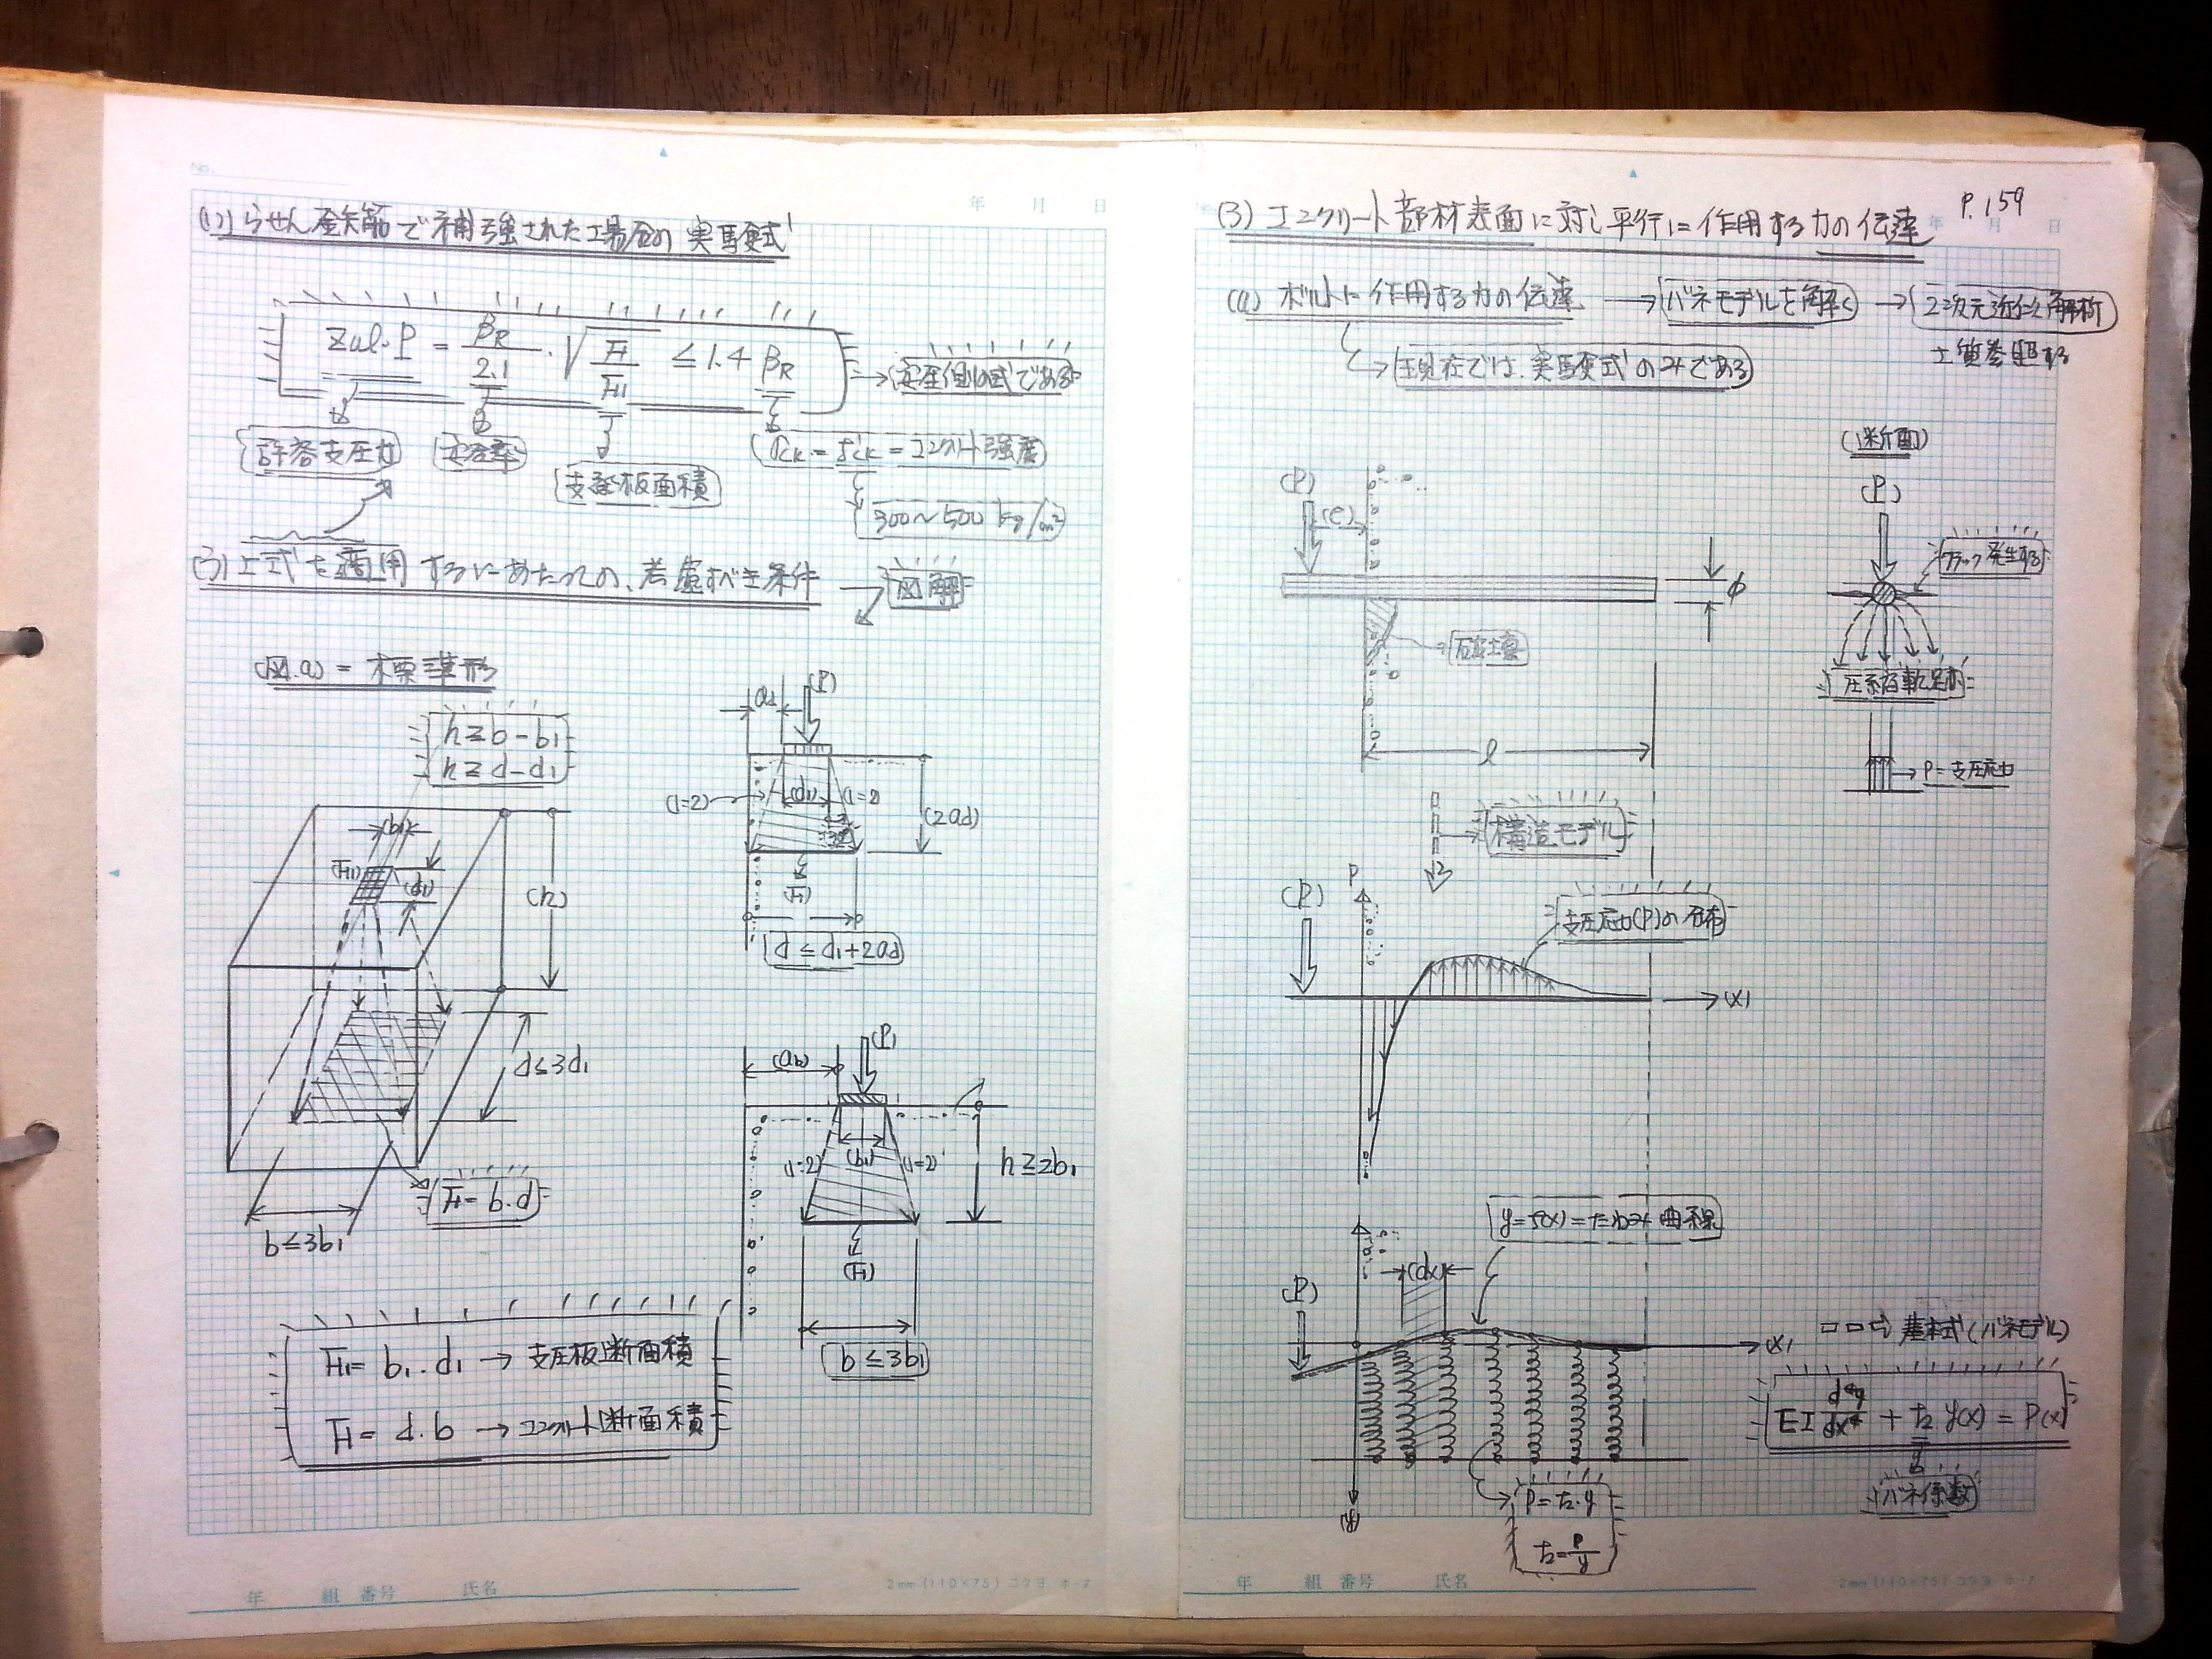 No.
年 月 日
(1) らせん鉄筋で補強された場合の実験式
zul・P = βR/2.1・√(F/F1) ≦ 1.4 βR
→ 安全側の式である
許容支圧力
安全率
支圧板面積
σck = f'ck = コンクリート強度
300〜500 kg/cm²
(3) 上式を適用するにあたっての、考慮すべき条件 → 図解
(図.a) = 標準形
h ≧ b - b1
h ≧ d - d1
(b1)
(F1)
(d1)
(h)
d ≦ 3d1
F = b・d
b ≦ 3b1
ad
(P)
(1=2)
(d1)
(1=2)
(2ad)
(F)
d ≦ d1+2ad
(ab)
(P)
(1=2)
(b1)
(1=2)
h ≧ 2b1
(F)
b ≦ 3b1
F1 = b1・d1 → 支圧板断面積
F = d・b → コンクリート断面積
年 組 番号 氏名
2mm (110×75) コクヨ ホ-7
P.159
年 月 日
(3) コンクリート部材表面に対し平行に作用する力の伝達
(a) ボルトに作用する力の伝達 → バネモデルを解く → 2次元近似解析
→ 現在では、実験式のみである
(断面)
(P)
(e)
φ
破壊
l
(P)
クラック発生する
圧縮軌跡
→ P = 支圧応力
構造モデル
P
(P)
支圧応力(P)の分布
(x)
y=f(x)=たわみ曲線
(P)
(dx)
(x)
(y)
P = k・y
k = P/y
基本式 (バネモデル)
EI d⁴y/dx⁴ + k・y(x) = P(x)
バネ係数
年 組 番号 氏名
2mm (110×75) コクヨ ホ-7